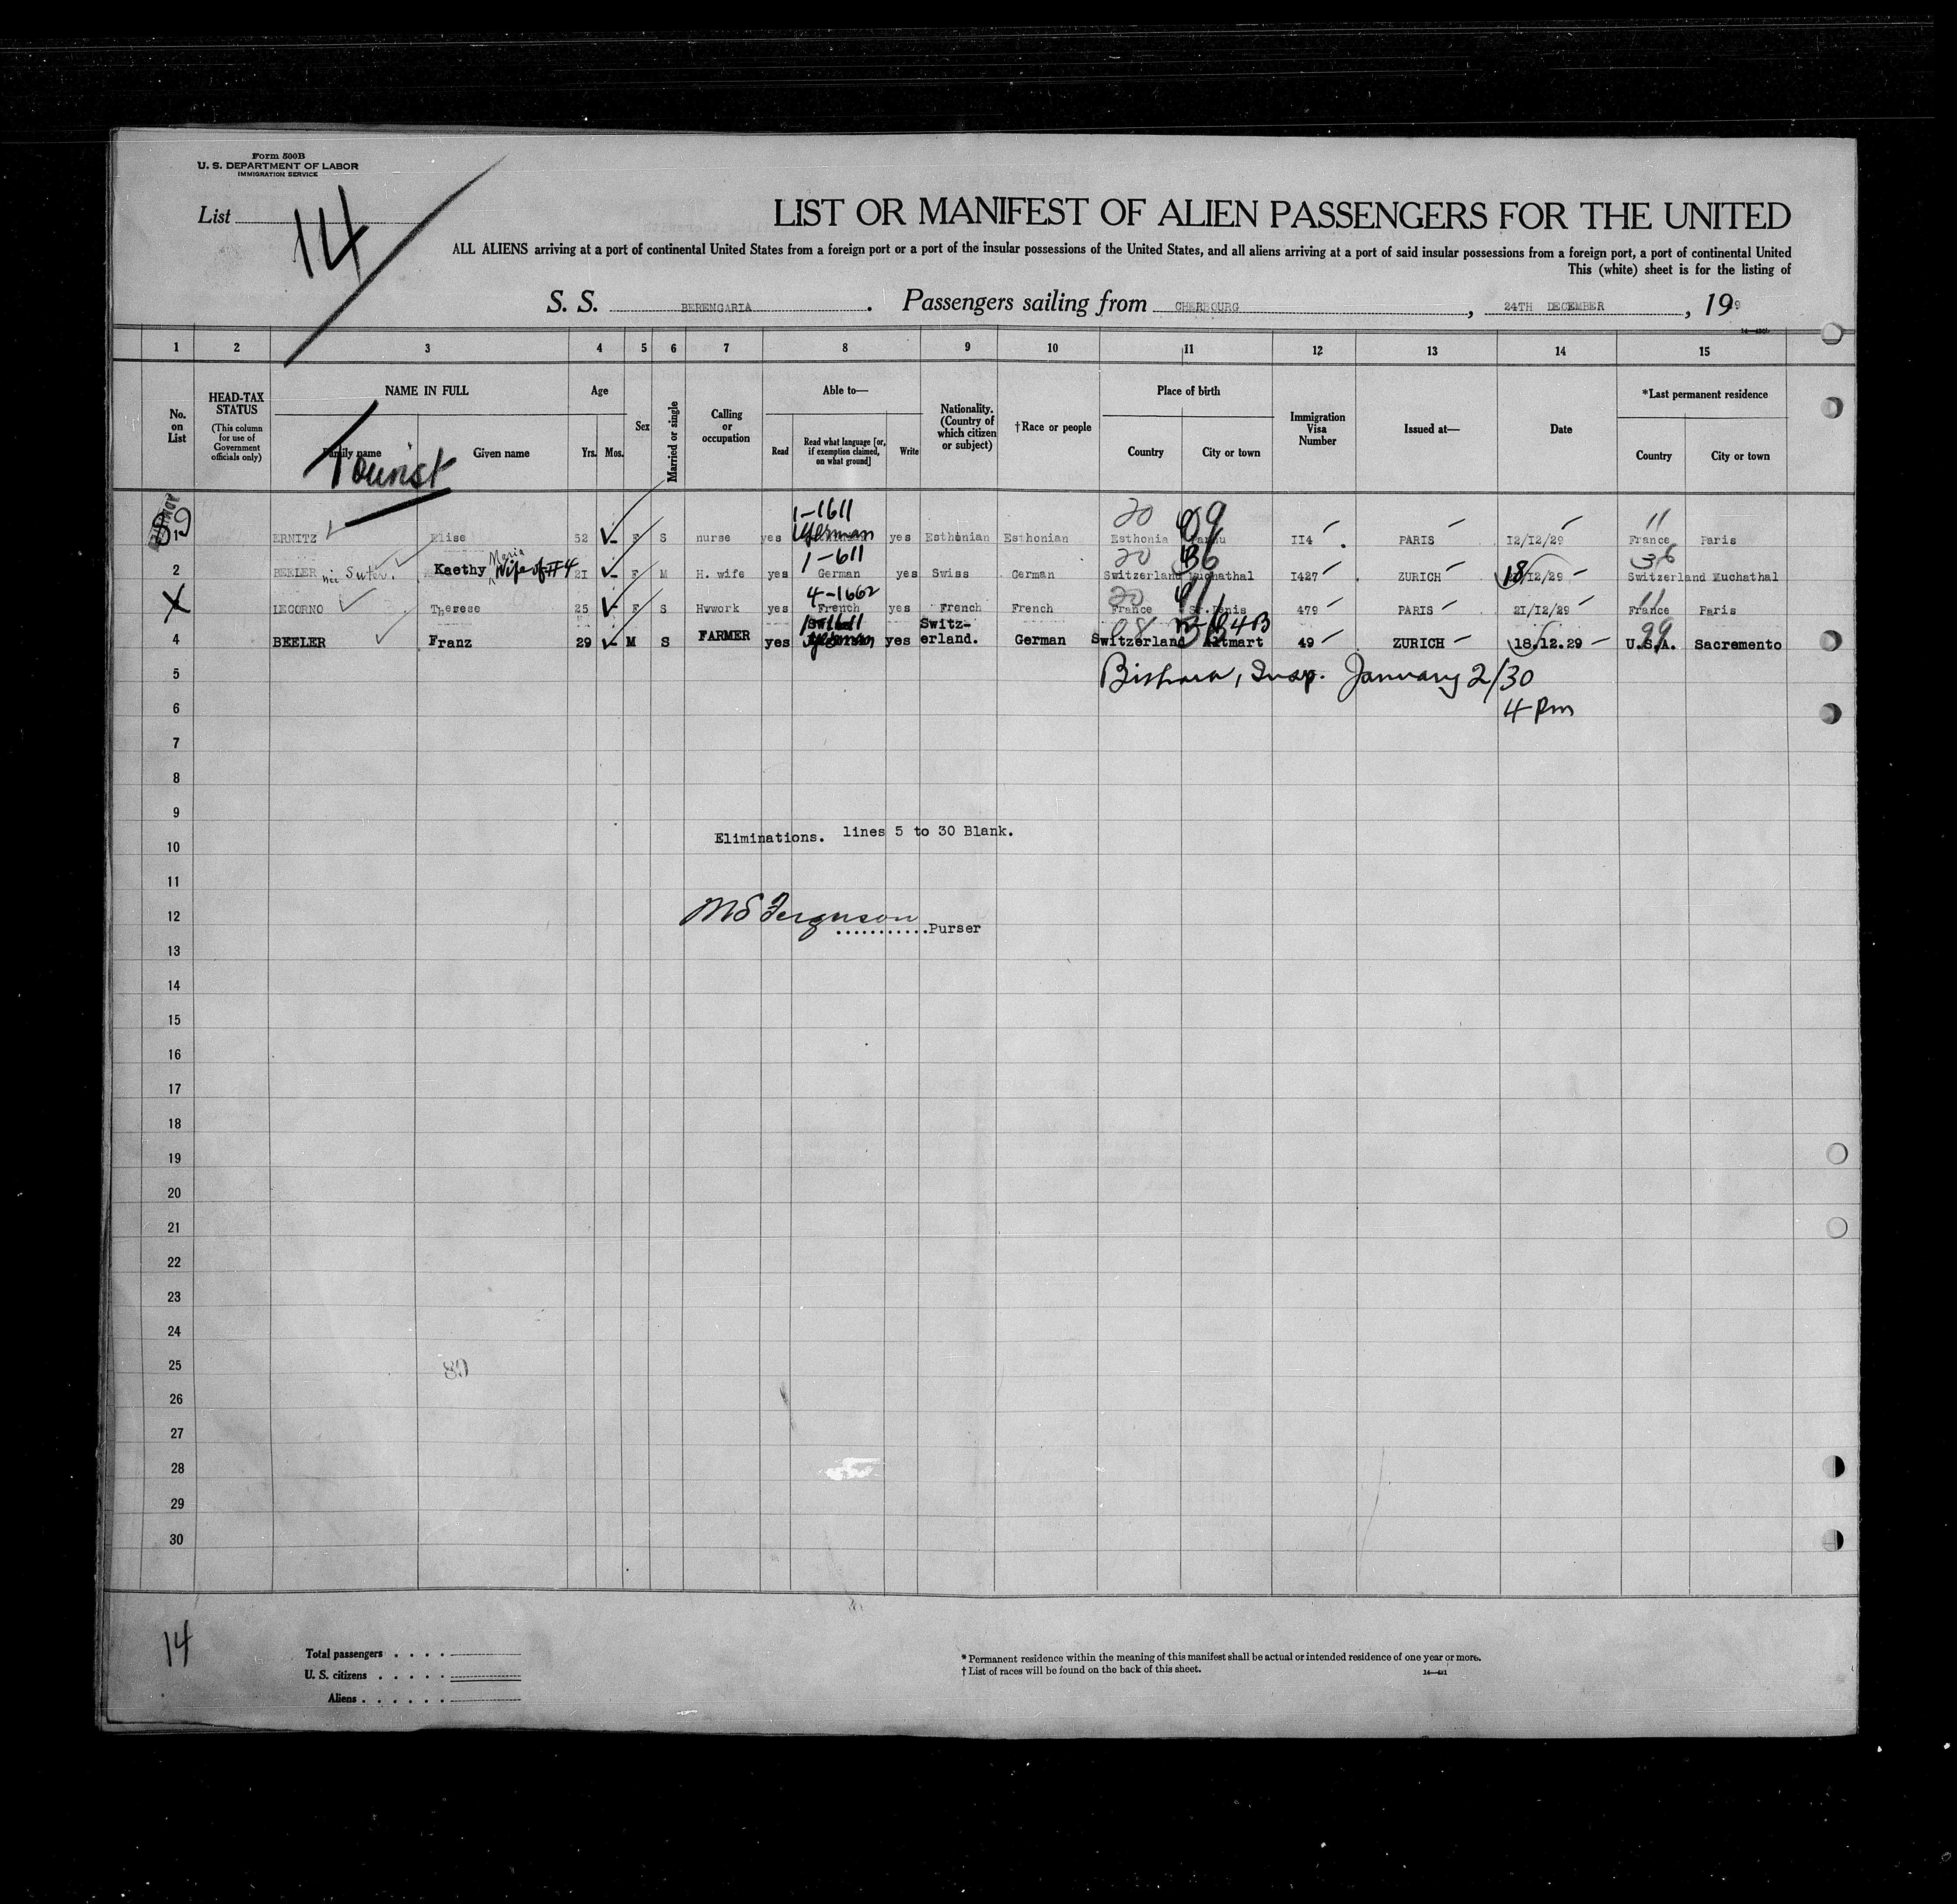 Form 500B
U. S. DEPARTMENT OF LABOR
IMMIGRATION SERVICE
List 14
LIST OR MANIFEST OF ALIEN PASSENGERS FOR THE UNITED
ALL ALIENS arriving at a port of continental United States from a foreign port or a port of the insular possessions of the United States, and all aliens arriving at a port of said insular possessions from a foreign port, a port of continental United
This (white) sheet is for the listing of
S. S. BERENGARIA. Passengers sailing from CHERBOURG, 24TH DECEMBER, 19 9
1 2 3 4 5 6 7 8 9 10 11 12 13 14 15
No. on List
HEAD-TAX STATUS (This column for use of Government officials only)
NAME IN FULL
Family name Given name
Tourist
Age
Yrs. Mos.
Sex
Married or single
Calling or occupation
Able to—
Read Read what language [or, if exemption claimed, on what ground] Write
Nationality. (Country of which citizen or subject)
†Race or people
Place of birth
Country City or town
Immigration Visa Number
Issued at—
Date
*Last permanent residence
Country City or town
1-1611 20 99 11
1 ERNITZ Elise 52 F S nurse yes German yes Esthonian Esthonian Esthonia II4 PARIS I2/I2/29 France Paris
1-611 20 36 36
2 BEELER née Suter. Kaethy Maria Wife of #4 2I F M H. wife yes German yes Swiss German Switzerland Muchathal I427 ZURICH 18/I2/29 Switzerland Muchathal
4-1662 20 11
LECORNO Therese 25 F S Hwwork yes French yes French French France St. Denis 479 PARIS 2I/I2/29 France Paris
1-1611 99
4 BEELER Franz 29 M S FARMER yes German yes Switz-erland. German Switzerland Altmart 49 ZURICH 18.12.29 U.S.A. Sacremento
5 Bishara, Insp. January 2/30
6 4 Pm
7
8
9
Eliminations. lines 5 to 30 Blank.
10
11
12 Ferguson
...........Purser
13
14
15
16
17
18
19
20
21
22
23
24
25
26
27
28
29
30
14
Total passengers . . . .
U. S. citizens . . . . .
Aliens . . . . . .
* Permanent residence within the meaning of this manifest shall be actual or intended residence of one year or more.
† List of races will be found on the back of this sheet.